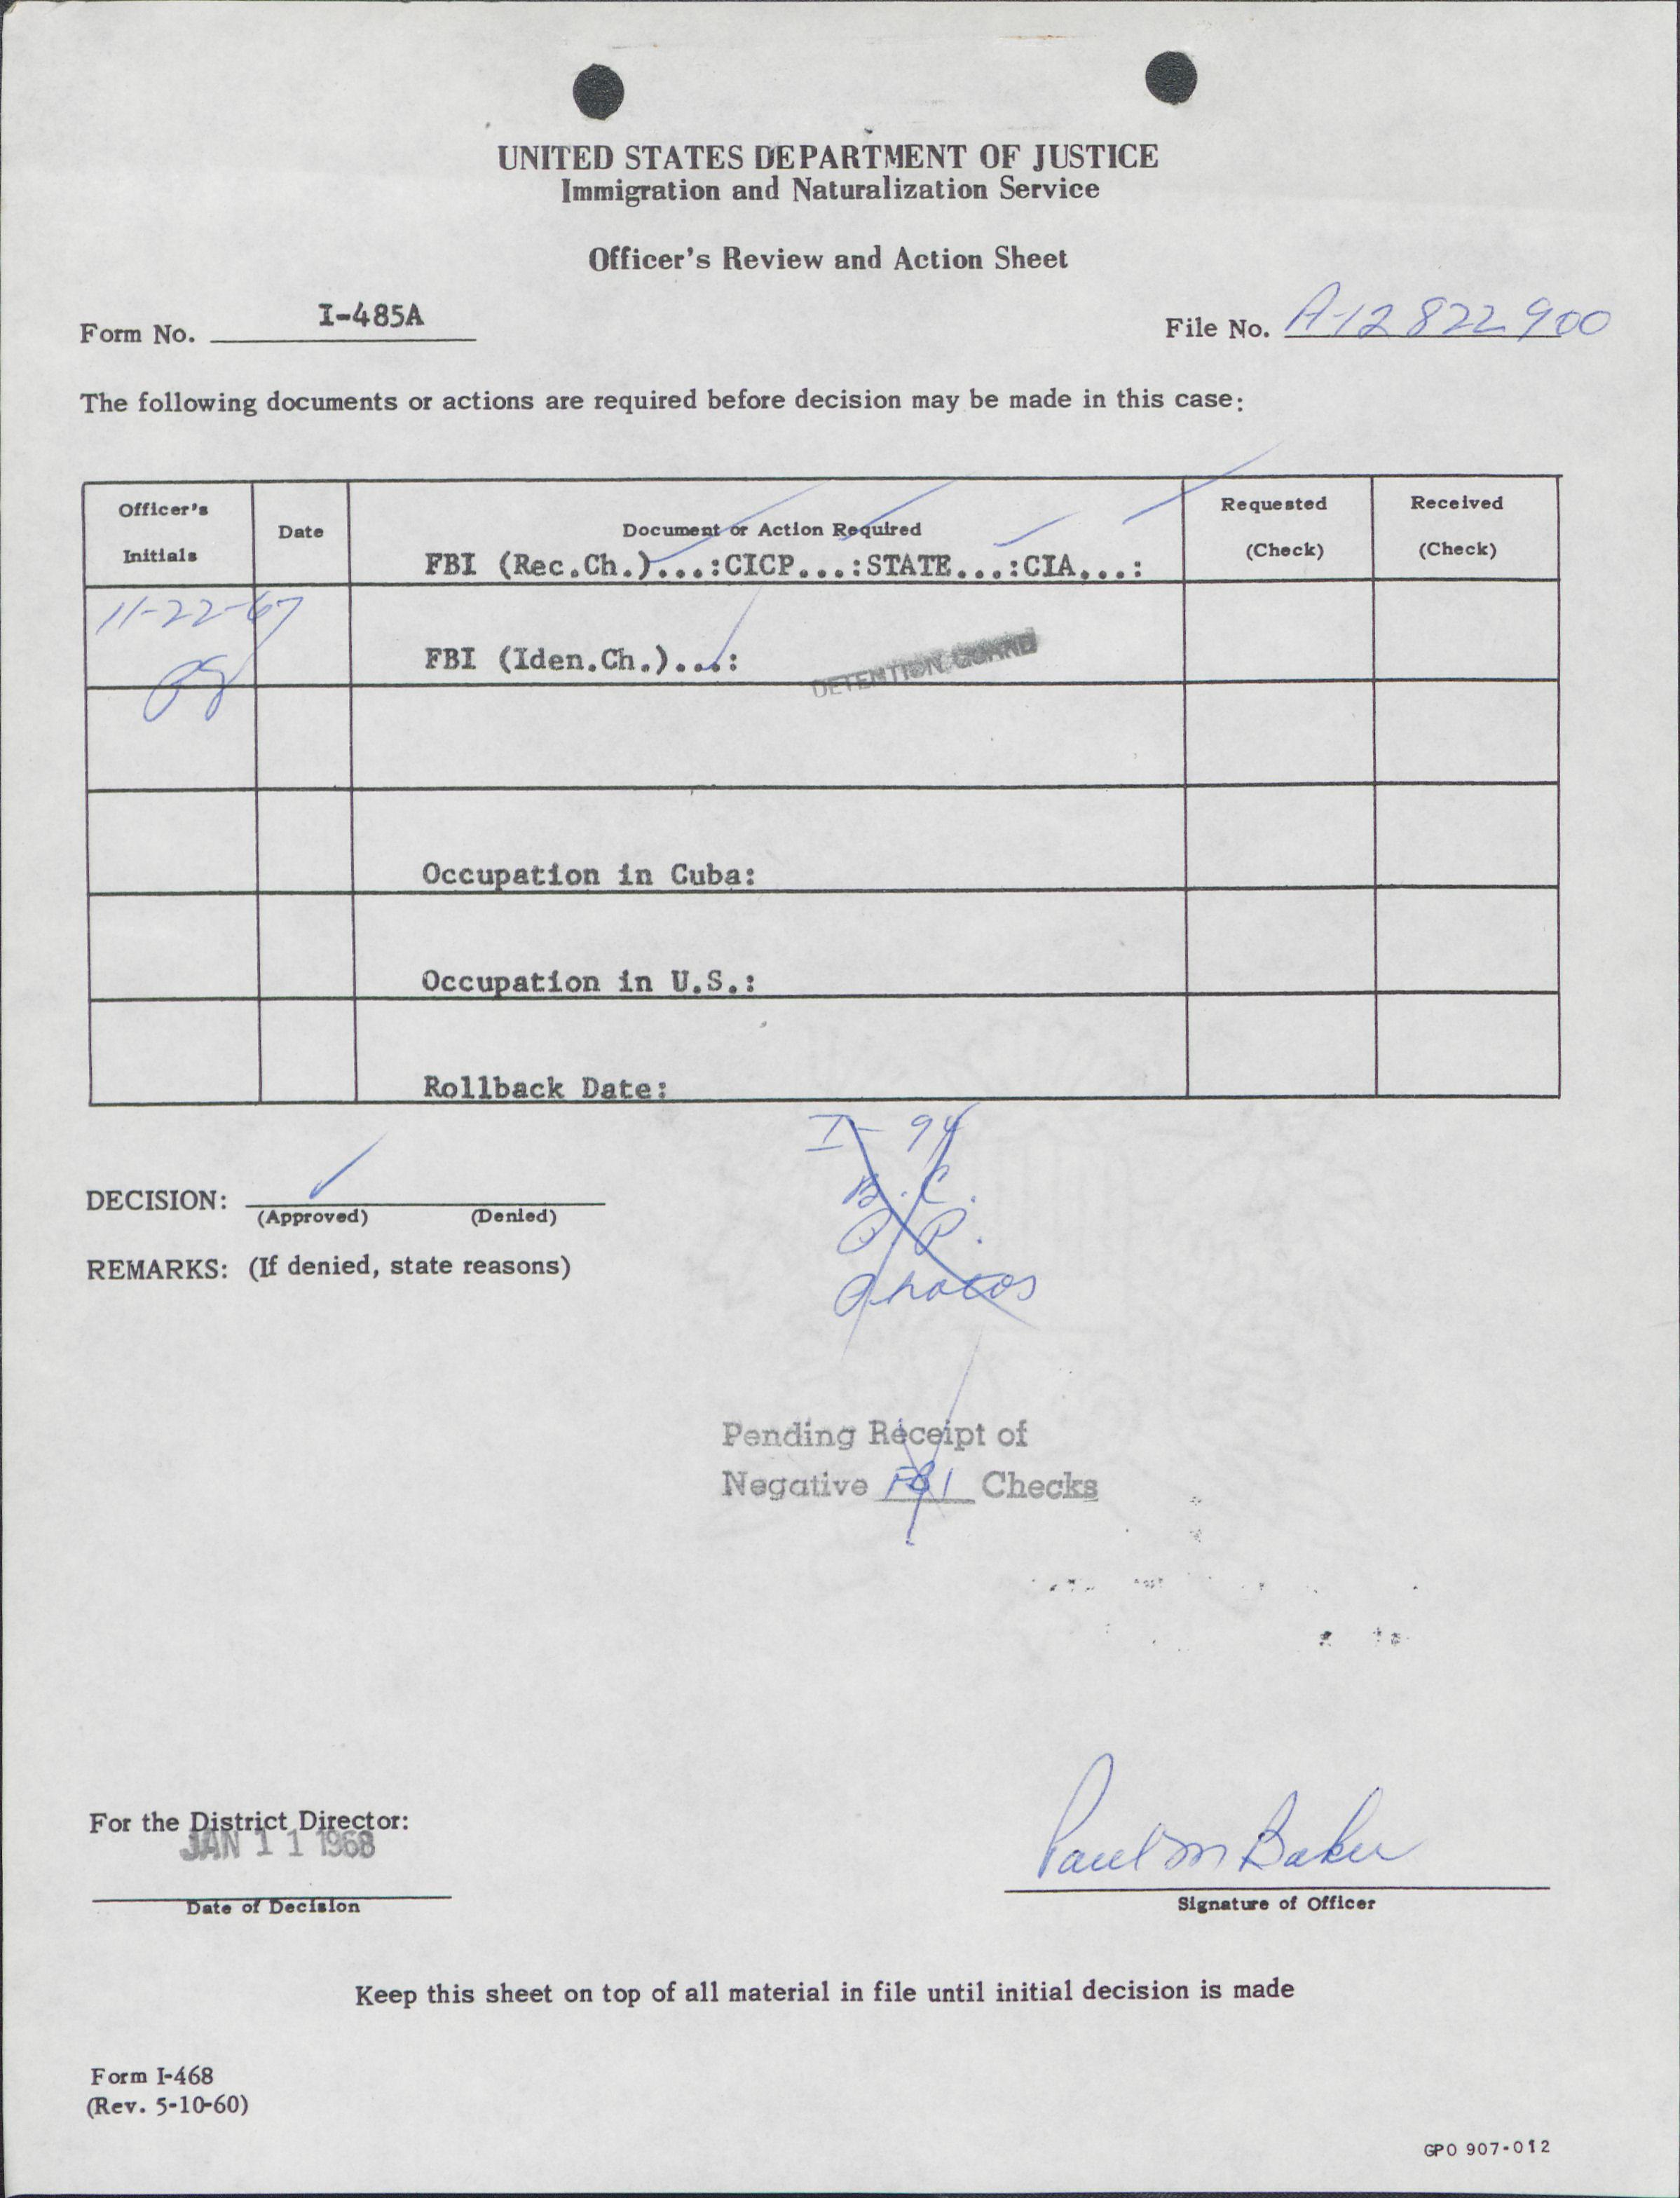 UNITED STATES DEPARTMENT OF JUSTICE
Immigration and Naturalization Service
Officer's Review and Action Sheet
Form No. I-485A
File No. A-12 822 900
The following documents or actions are required before decision may be made in this case:
Officer's Initials
Date
Document or Action Required
Requested (Check)
Received (Check)
FBI (Rec.Ch.)...:CICP...:STATE...:CIA...:
11-22-67
FBI (Iden.Ch.)...:
DETENTION GUARD
Occupation in Cuba:
Occupation in U.S.:
Rollback Date:
I-94
B.C.
P.P.
Photos
DECISION:
(Approved) (Denied)
REMARKS: (If denied, state reasons)
Pending Receipt of
Negative FBI Checks
For the District Director:
JAN 11 1968
Date of Decision
Paul M Baker
Signature of Officer
Keep this sheet on top of all material in file until initial decision is made
Form I-468
(Rev. 5-10-60)
GPO 907-012